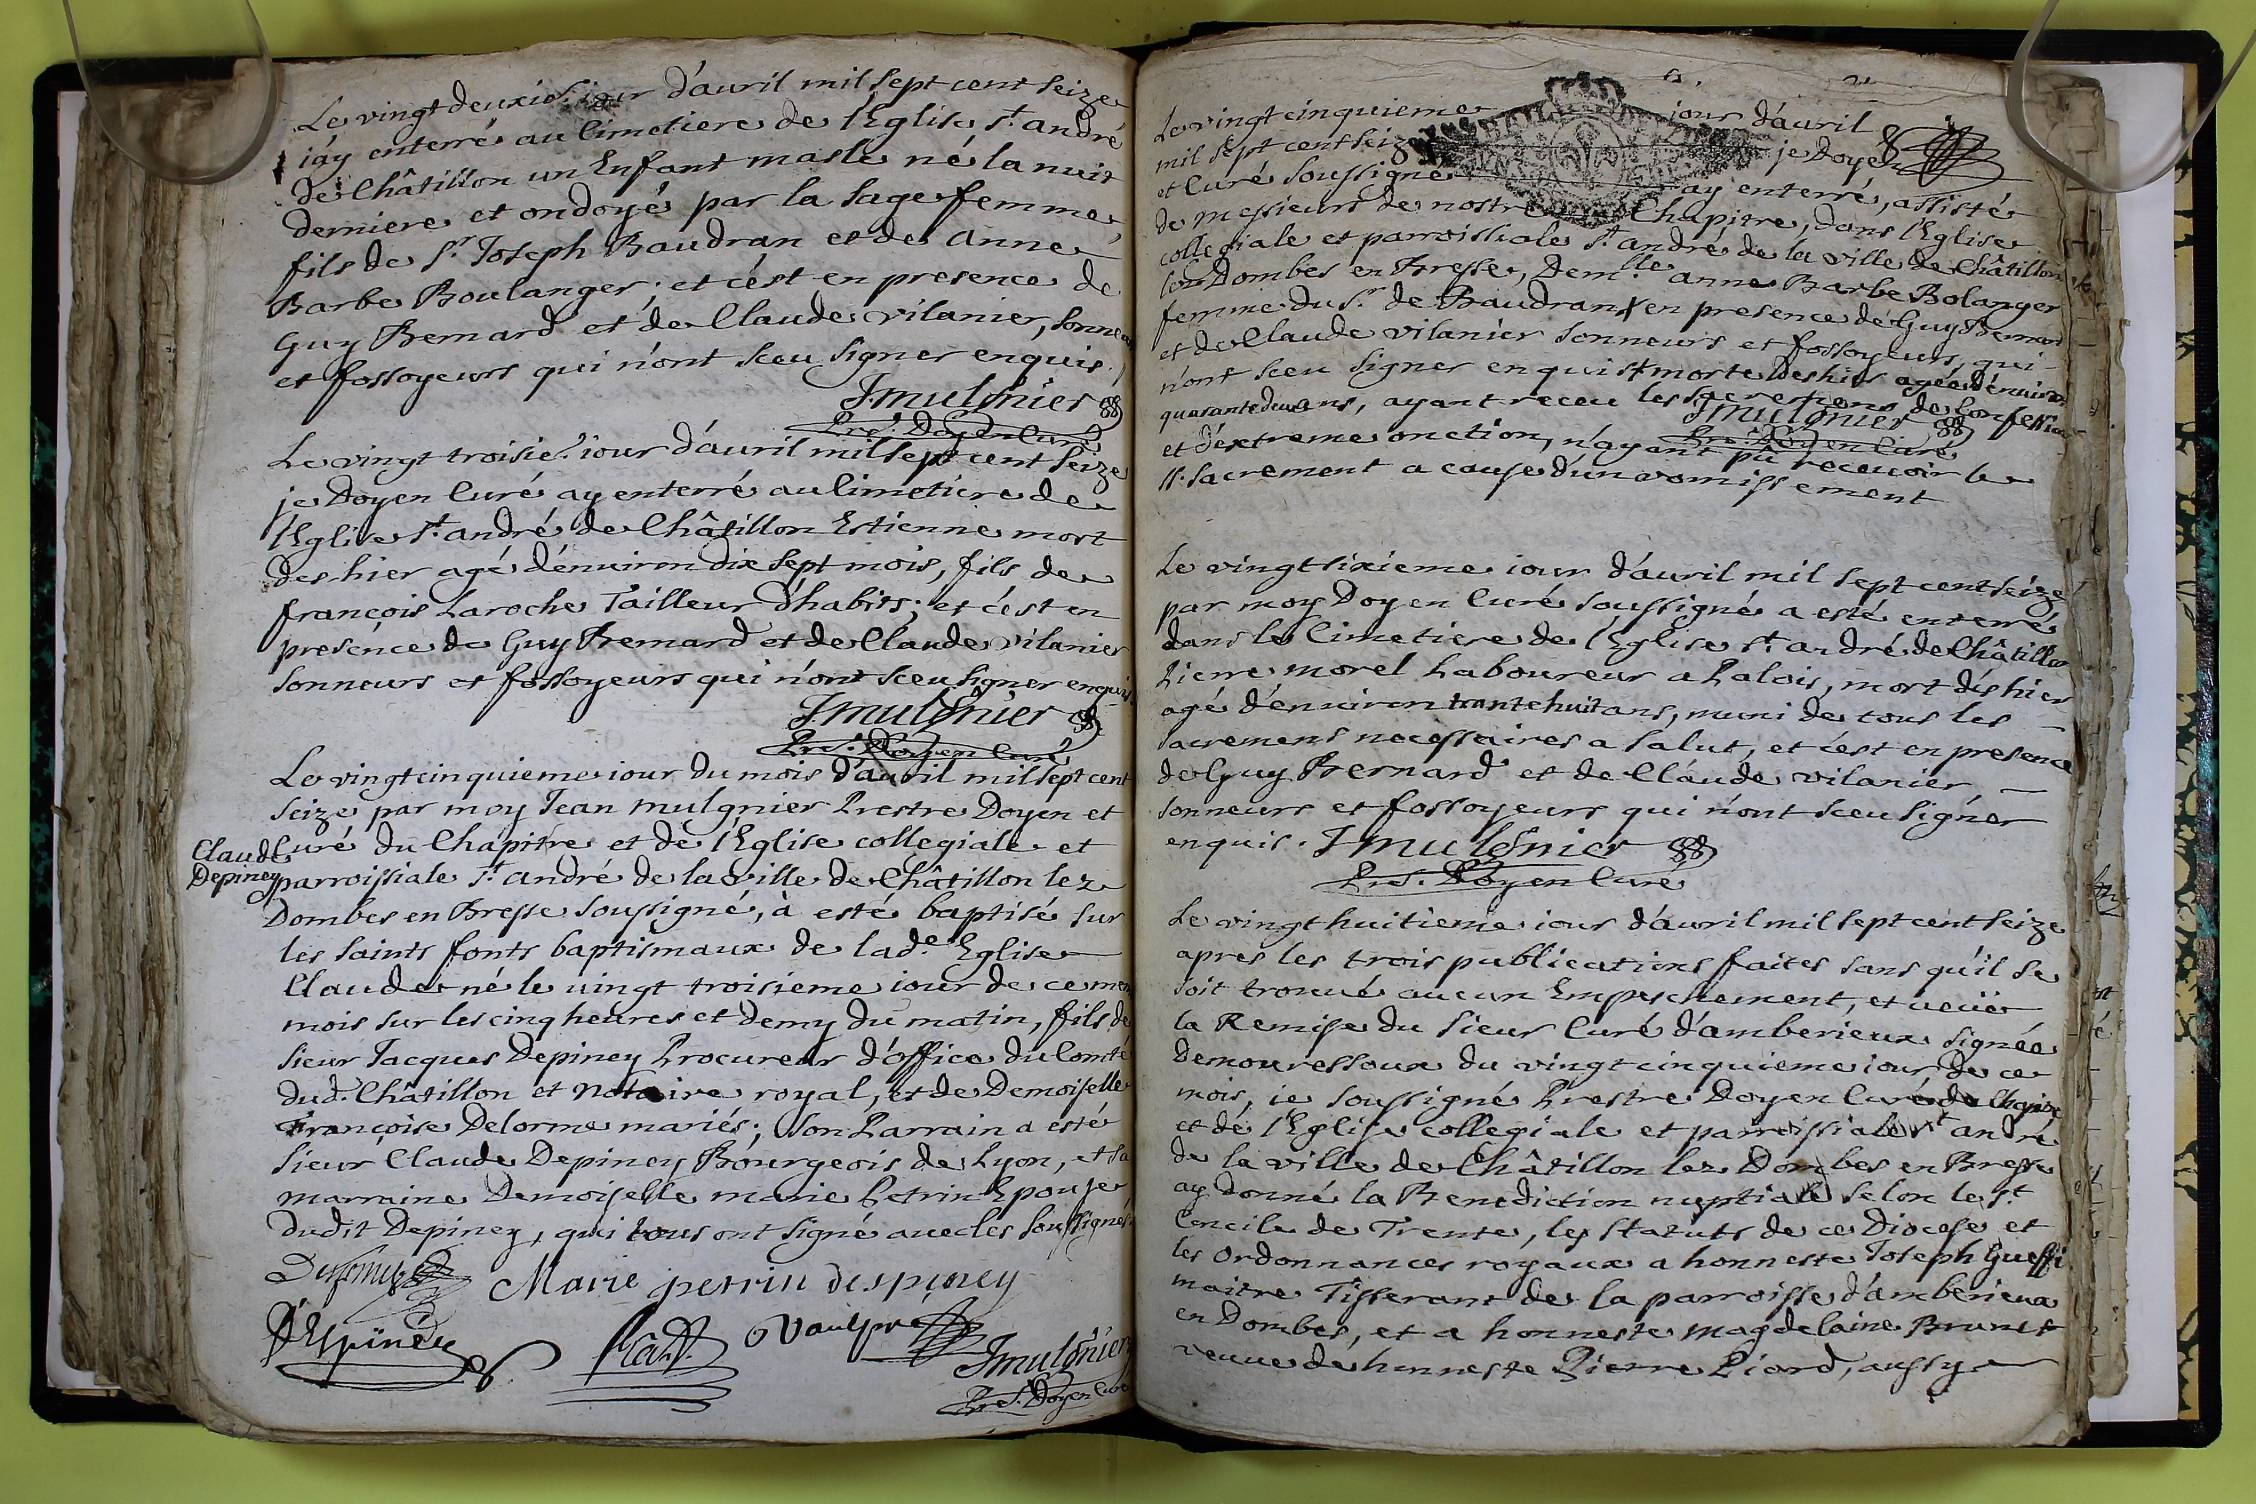 Le vingt deuxie. iour d'auril mil sept cent seize
i'ay enterré au Cimetiere de l'Eglise St. andré
de Châtillon un Enfant masle né la nuit
derniere et ondoyé par la sage femme,
fils de Sr. Joseph Baudran et de Anne
Barbe Boulanger; et c'est en presence de
Guy Bernard et de Claude vilanier, sonneurs
et fossoyeurs qui n'ont sceu signer enquis.
J mulgnier
Pre. Doyen Curé
Le vingt troisie. iour d'auril mil sept cent seize
je Doyen Curé ay enterré au Cimetiere de
l'Eglise St. andré de Châtillon Estienne mort
des hier agé d'enuiron dix sept mois, fils de
françois Laroche Tailleur d'habits; et c'est en
presence de Guy Bernard et de Claude vilanier
sonneurs et fossoyeurs qui n'ont sceu signer enquis.
J mulgnier
Pre. Doyen Curé
Le vingt cinquieme iour du mois d'auril mil sept cent
seize par moy Jean mulgnier Prestre Doyen et
Curé du Chapitre et de l'Eglise collegiale et
Claude
Depiney
parroissiale St. andré de la ville de Châtillon lez
Dombes en Bresse soussigné, à esté baptisé sur
les saints fonts baptismaux de lade. Eglise
Claude né le vingt troisieme iour de ce
mois sur les cinq heures et demy du matin, fils de
sieur Jacques Depiney Procureur d'office du Comté
dud. Châtillon et Notaire royal, et de Demoiselle
Françoise Delorme mariés; son Parrain a esté
sieur Claude Depiney Bourgeois de Lyon, et sa
marraine Demoiselle marie Petrin Epouse
dudit Depiney, qui tous ont signé auec les soussignés
Marie perrin despiney
D'Espiney
J mulgnier
Pre. Doyen Curé
Le vingt cinquieme iour d'auril
mil sept cent seize je Doyen
et Curé soussigné ay enterré, assisté
de messieurs de nostre Chapitre, dans l'Eglise
collegiale et parroissiale St. andré de la ville de Châtillon
lez Dombes en Bresse, Demlle. anne Barbe Bolanger
femme du Sr. de Baudran + en presence de Guy Bernard
et de Claude vilanier sonneurs et fossoyeurs, qui
n'ont sceu signer enquis + morte des hier agée d'enuiron
quarante deux ans, ayant receu les sacremens de Confession
J mulgnier
Pre. Doyen Curé
et d'extreme onction, n'ayant pû receuoir le
St. Sacrement a cause d'un vomissement
Le vingt sixieme iour d'auril mil sept cent seize
par moy Doyen Curé soussigné a esté enterré
dans le Cimetiere de l'Eglise St. andré de Châtillon
Pierre morel Laboureur a Palais, mort dès hier
agé d'enuiron trante huit ans, muni de tous les
sacremens necessaires a salut, et c'est en presence
de Guy Bernard et de Claude vilanier
sonneurs et fossoyeurs qui n'ont sceu signer
enquis. J mulgnier
Pre. Doyen Curé
Le vingt huitieme iour d'auril mil sept cent seize
apres les trois publications faites sans qu'il se
soit trouué aucun Empeschement, et ueüe
la Remise du sieur Curé d'amberieux signée
Demouressoux du vingt cinquieme iour de ce
mois, ie soussigné Prestre Doyen Curé du Chapitre
et de l'Eglise collegiale et parroissiale St andré
de la ville de Châtillon lez Dombes en Bresse
ay donné la Benediction nuptiale selon le St.
Concile de Trente, les statuts de ce Diocese et
les ordonnances royaux a honneste Joseph
maitre Tisserant de la parroisse d'amberieux
en Dombes, et a honneste magdelaine Brunet
veuue de honneste Pierre Piard, aussy